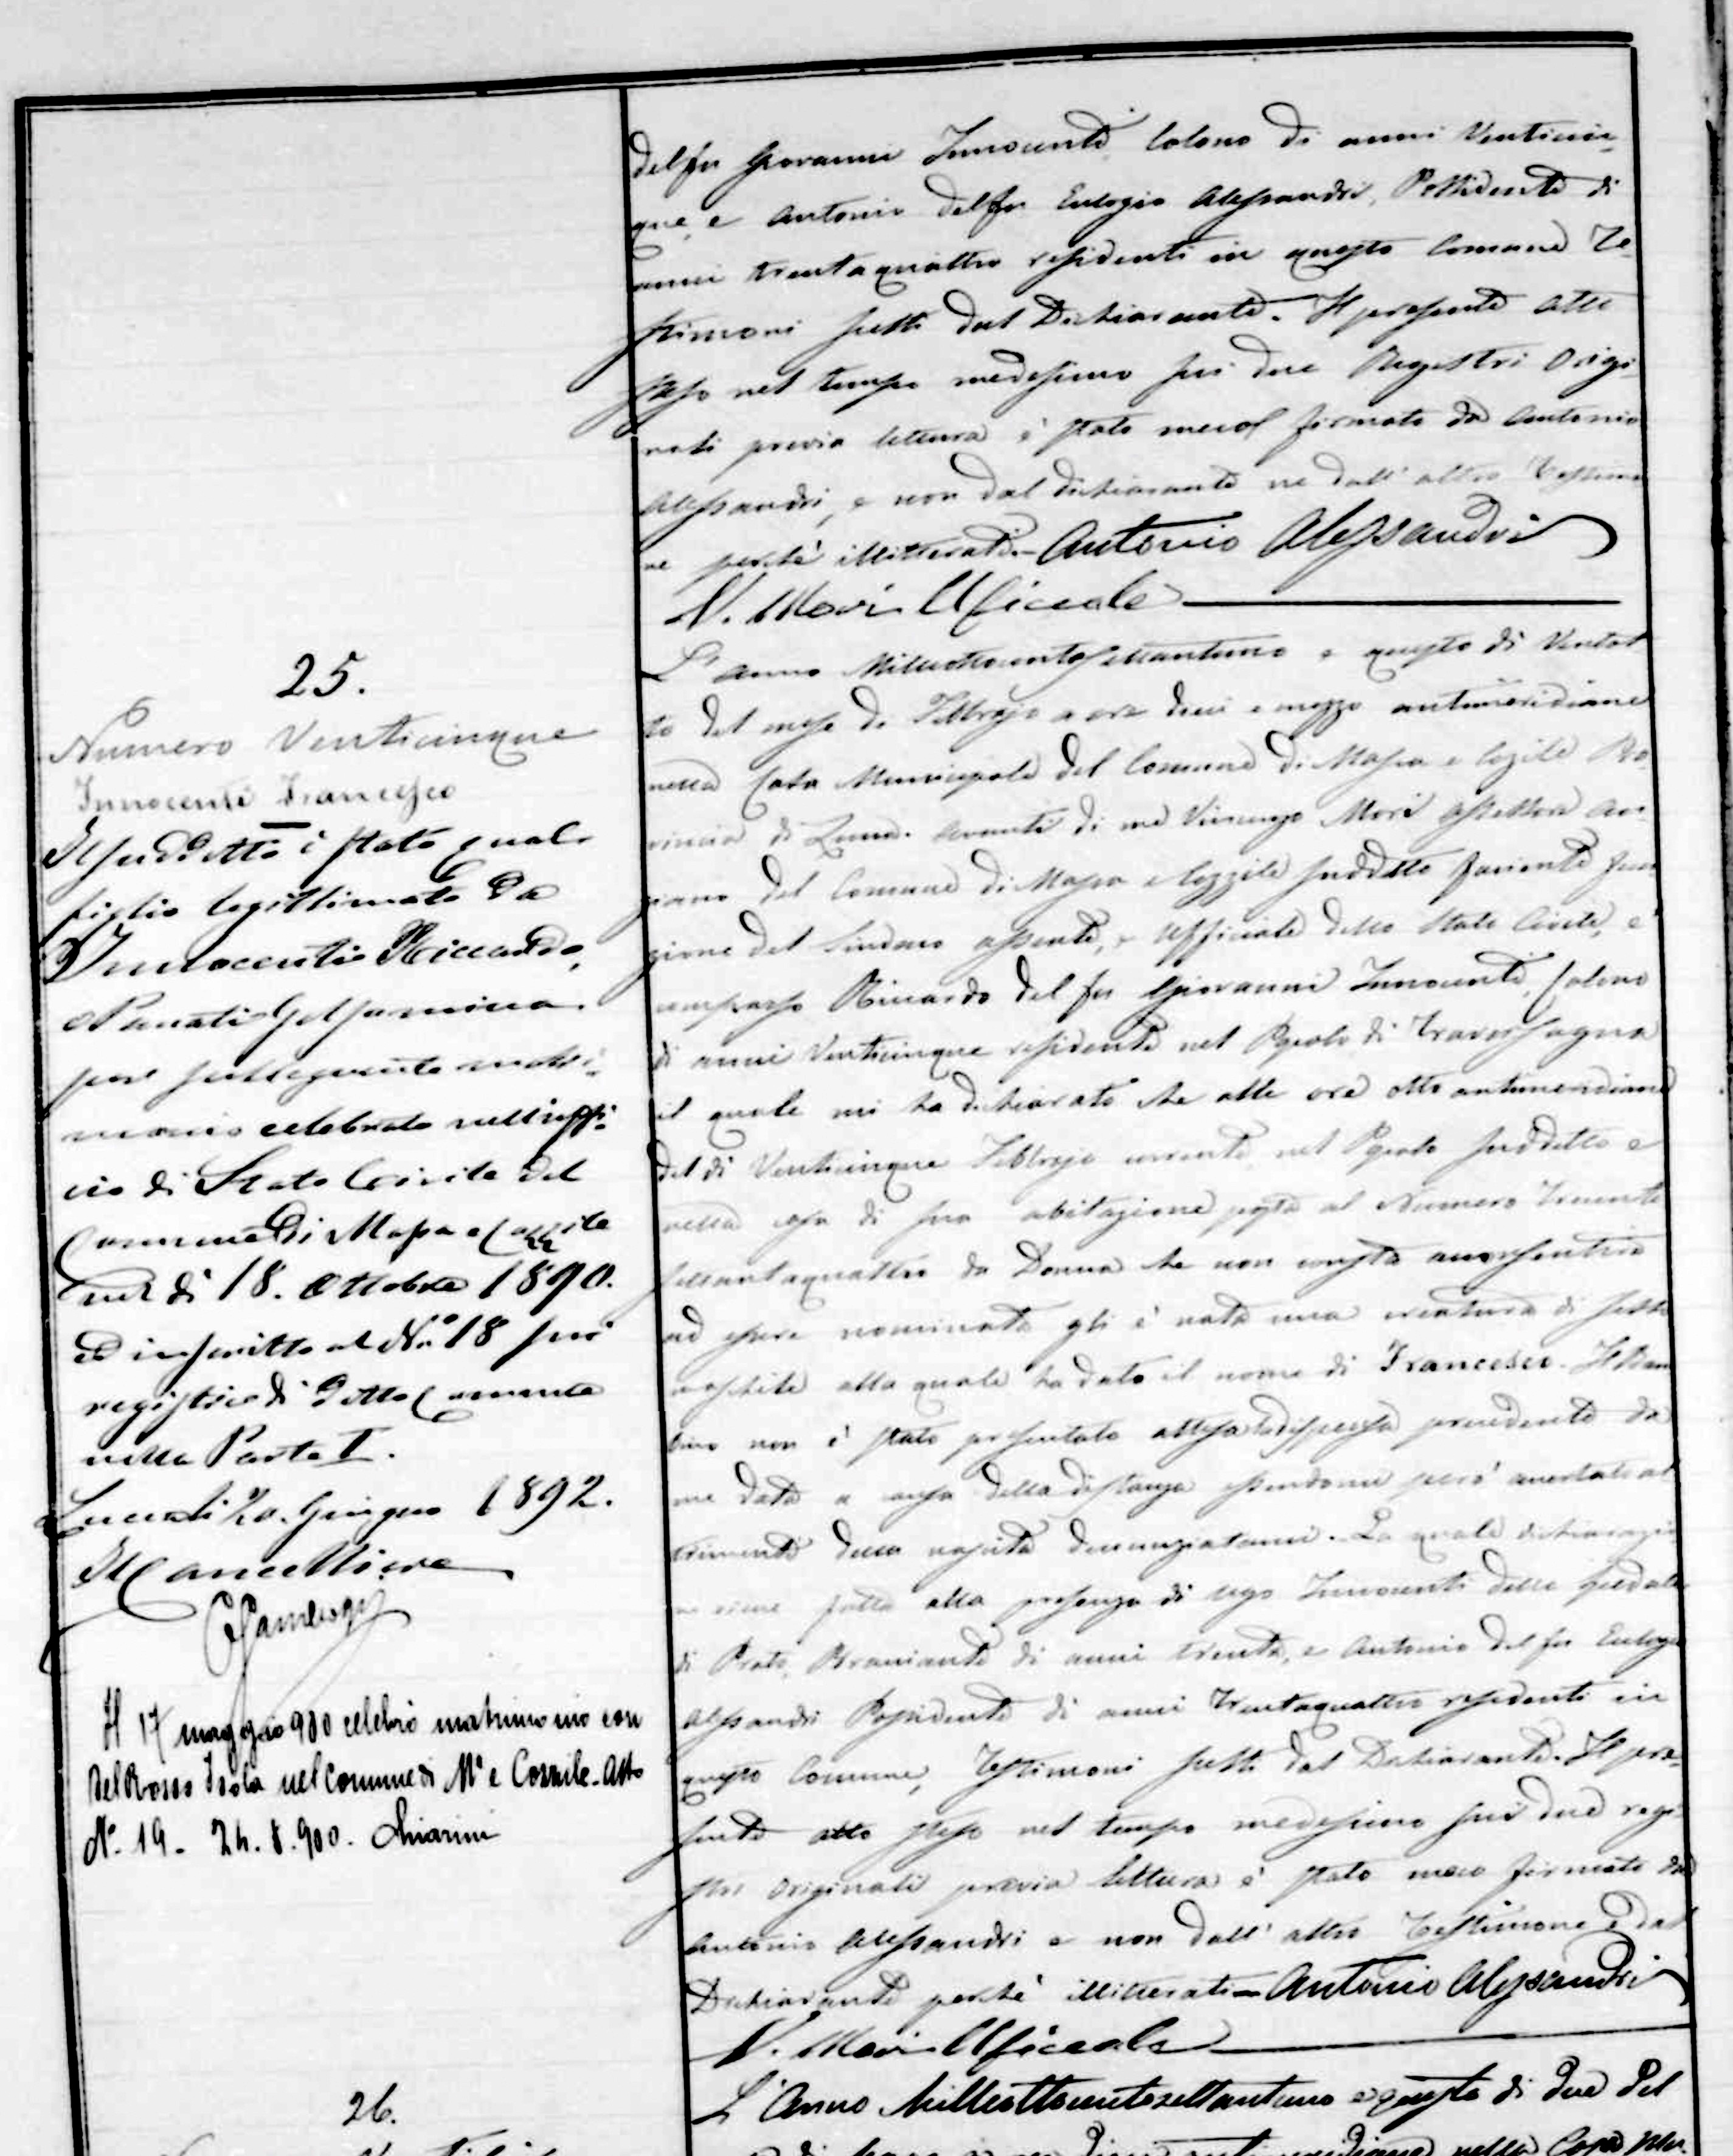 del fu Giovanni Innocenti Colono di anni Venticin-
que, e Antonio del fu Eulogio Alessandri, Possidente di
anni trentaquattro residenti in questo Comune Te-
stimoni scelti dal Dichiarante. Il presente atto
steso nel tempo medesimo sui due Registri Origi-
nali previa lettura è stato meco firmato da Antonio
Alessandri, e non dal dichiarante ne dall'altro Testimo
ne perchè illitterati - Antonio Alessandri
V. Mori Uficiale
25.
Numero Venticinque
Innocenti Francesco
Il suddetto è stato qual
figlio legittimato da
Innocenti Riccardo,
e Gelsomina
per susseguente matri-
monio celebrato nell'uffi-
cio di Stato Civile del
Comune di Massa e Cozzile
nel dì 18. Ottobre 1890.
ed inscritto al N.º 18 sui
registri di detto Comune
nella Parte I.
Lucca li 20. Giugno 1892.
Il Cancelliere
Il 17 maggio 900 celebrò matrimonio con
Del Rosso Isola nel comune di Mª e Cozzile - Atto
Nº. 19 - 24.8.900. Chiarini
L'anno Milleottocentosettantuno e questo dì Ventot
to del mese di Febbrajo a ore dieci e mezzo antimeridiane
nella Casa Municipale del Comune di Massa e Cozzile Pro
vincia di Lucca. Avanti di me Vincenzo Mori Assessore An
ziano del Comune di Massa e Cozzile suddetto facente fun
zione del Sindaco assente, e Uffiziale dello Stato Civile, è
comparso Riccardo del fu Giovanni Innocenti, Colono
di anni Venticinque residente nel Popolo di Traversagna
il quale mi ha dichiarato che alle ore otto antimeridiane
del dì Venticinque Febbrajo corrente nel Popolo suddetto e
nella casa di sua abitazione posta al Numero Trecento
settantaquattro da Donna che non consta acconsentire
ad essere nominata gli è nata una creatura di sesso
maschile alla quale ha dato il nome di Francesco. Il Bam
bino non è stato presentato attesa la dispensa precedente da
me data a causa della distanza essendomi però accertato al
trimenti della nascita denunziatami. La quale dichiarazio
ne viene fatta alla presenza di Ugo Innocenti dello Spedale
di Prato, Bracciante di anni trenta, e Antonio del fu Eulogio
Alessandri Possidente di anni Trentaquattro residenti in
questo Comune, Testimoni scelti dal Dichiarante. Il pre-
sente atto steso nel tempo medesimo sui due regi
stri Originali previa lettura è stato meco firmato da
Antonio Alessandri e non dall'altro Testimone e dal
Dichiarante perchè illitterati - Antonio Alessandri
V. Mori Uficiale
26.
L'Anno Milleottocentosettantuno e questo dì due del